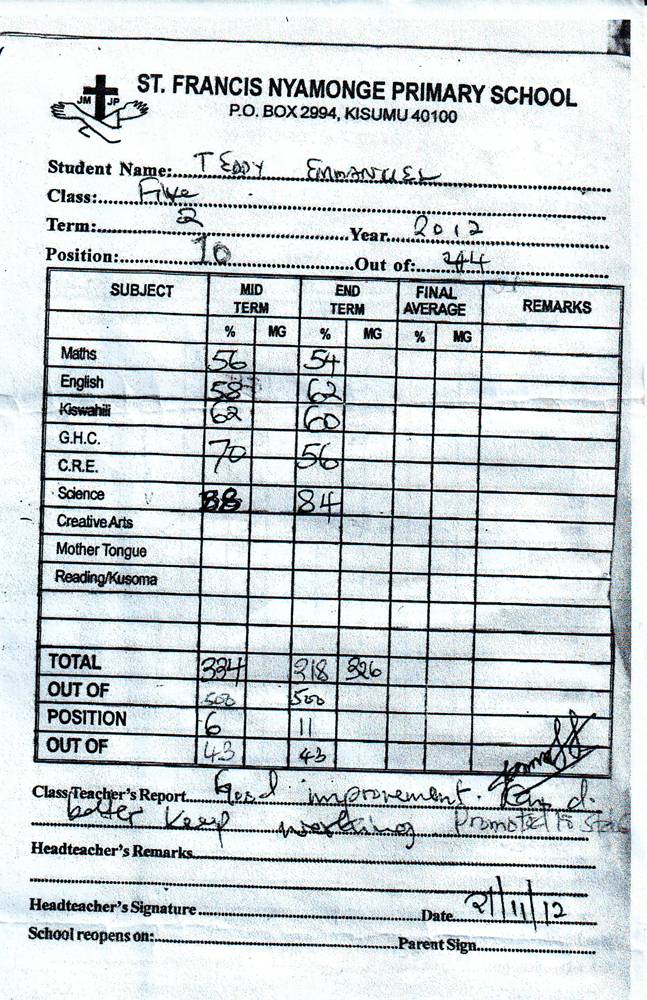 JM JP
ST. FRANCIS NYAMONGE PRIMARY SCHOOL
P.O. BOX 2994, KISUMU 40100
Student Name: TEDDY EMMANUEL
Class: Five
Term: 2 Year 2012
Position: 10 Out of: 44
SUBJECT MID TERM END TERM FINAL AVERAGE REMARKS
% MG % MG % MG
Maths 56 54
English 58 62
Kiswahili 62 60
G.H.C.
C.R.E. 70 56
Science 88 84
Creative Arts
Mother Tongue
Reading/Kusoma
TOTAL 334 318 326
OUT OF 500 500
POSITION 6 11
OUT OF 43 43
Class Teacher's Report Good improvement. Can do
better keep working Promoted to
Headteacher's Remarks
Headteacher's Signature Date 21/11/12
School reopens on: Parent Sign